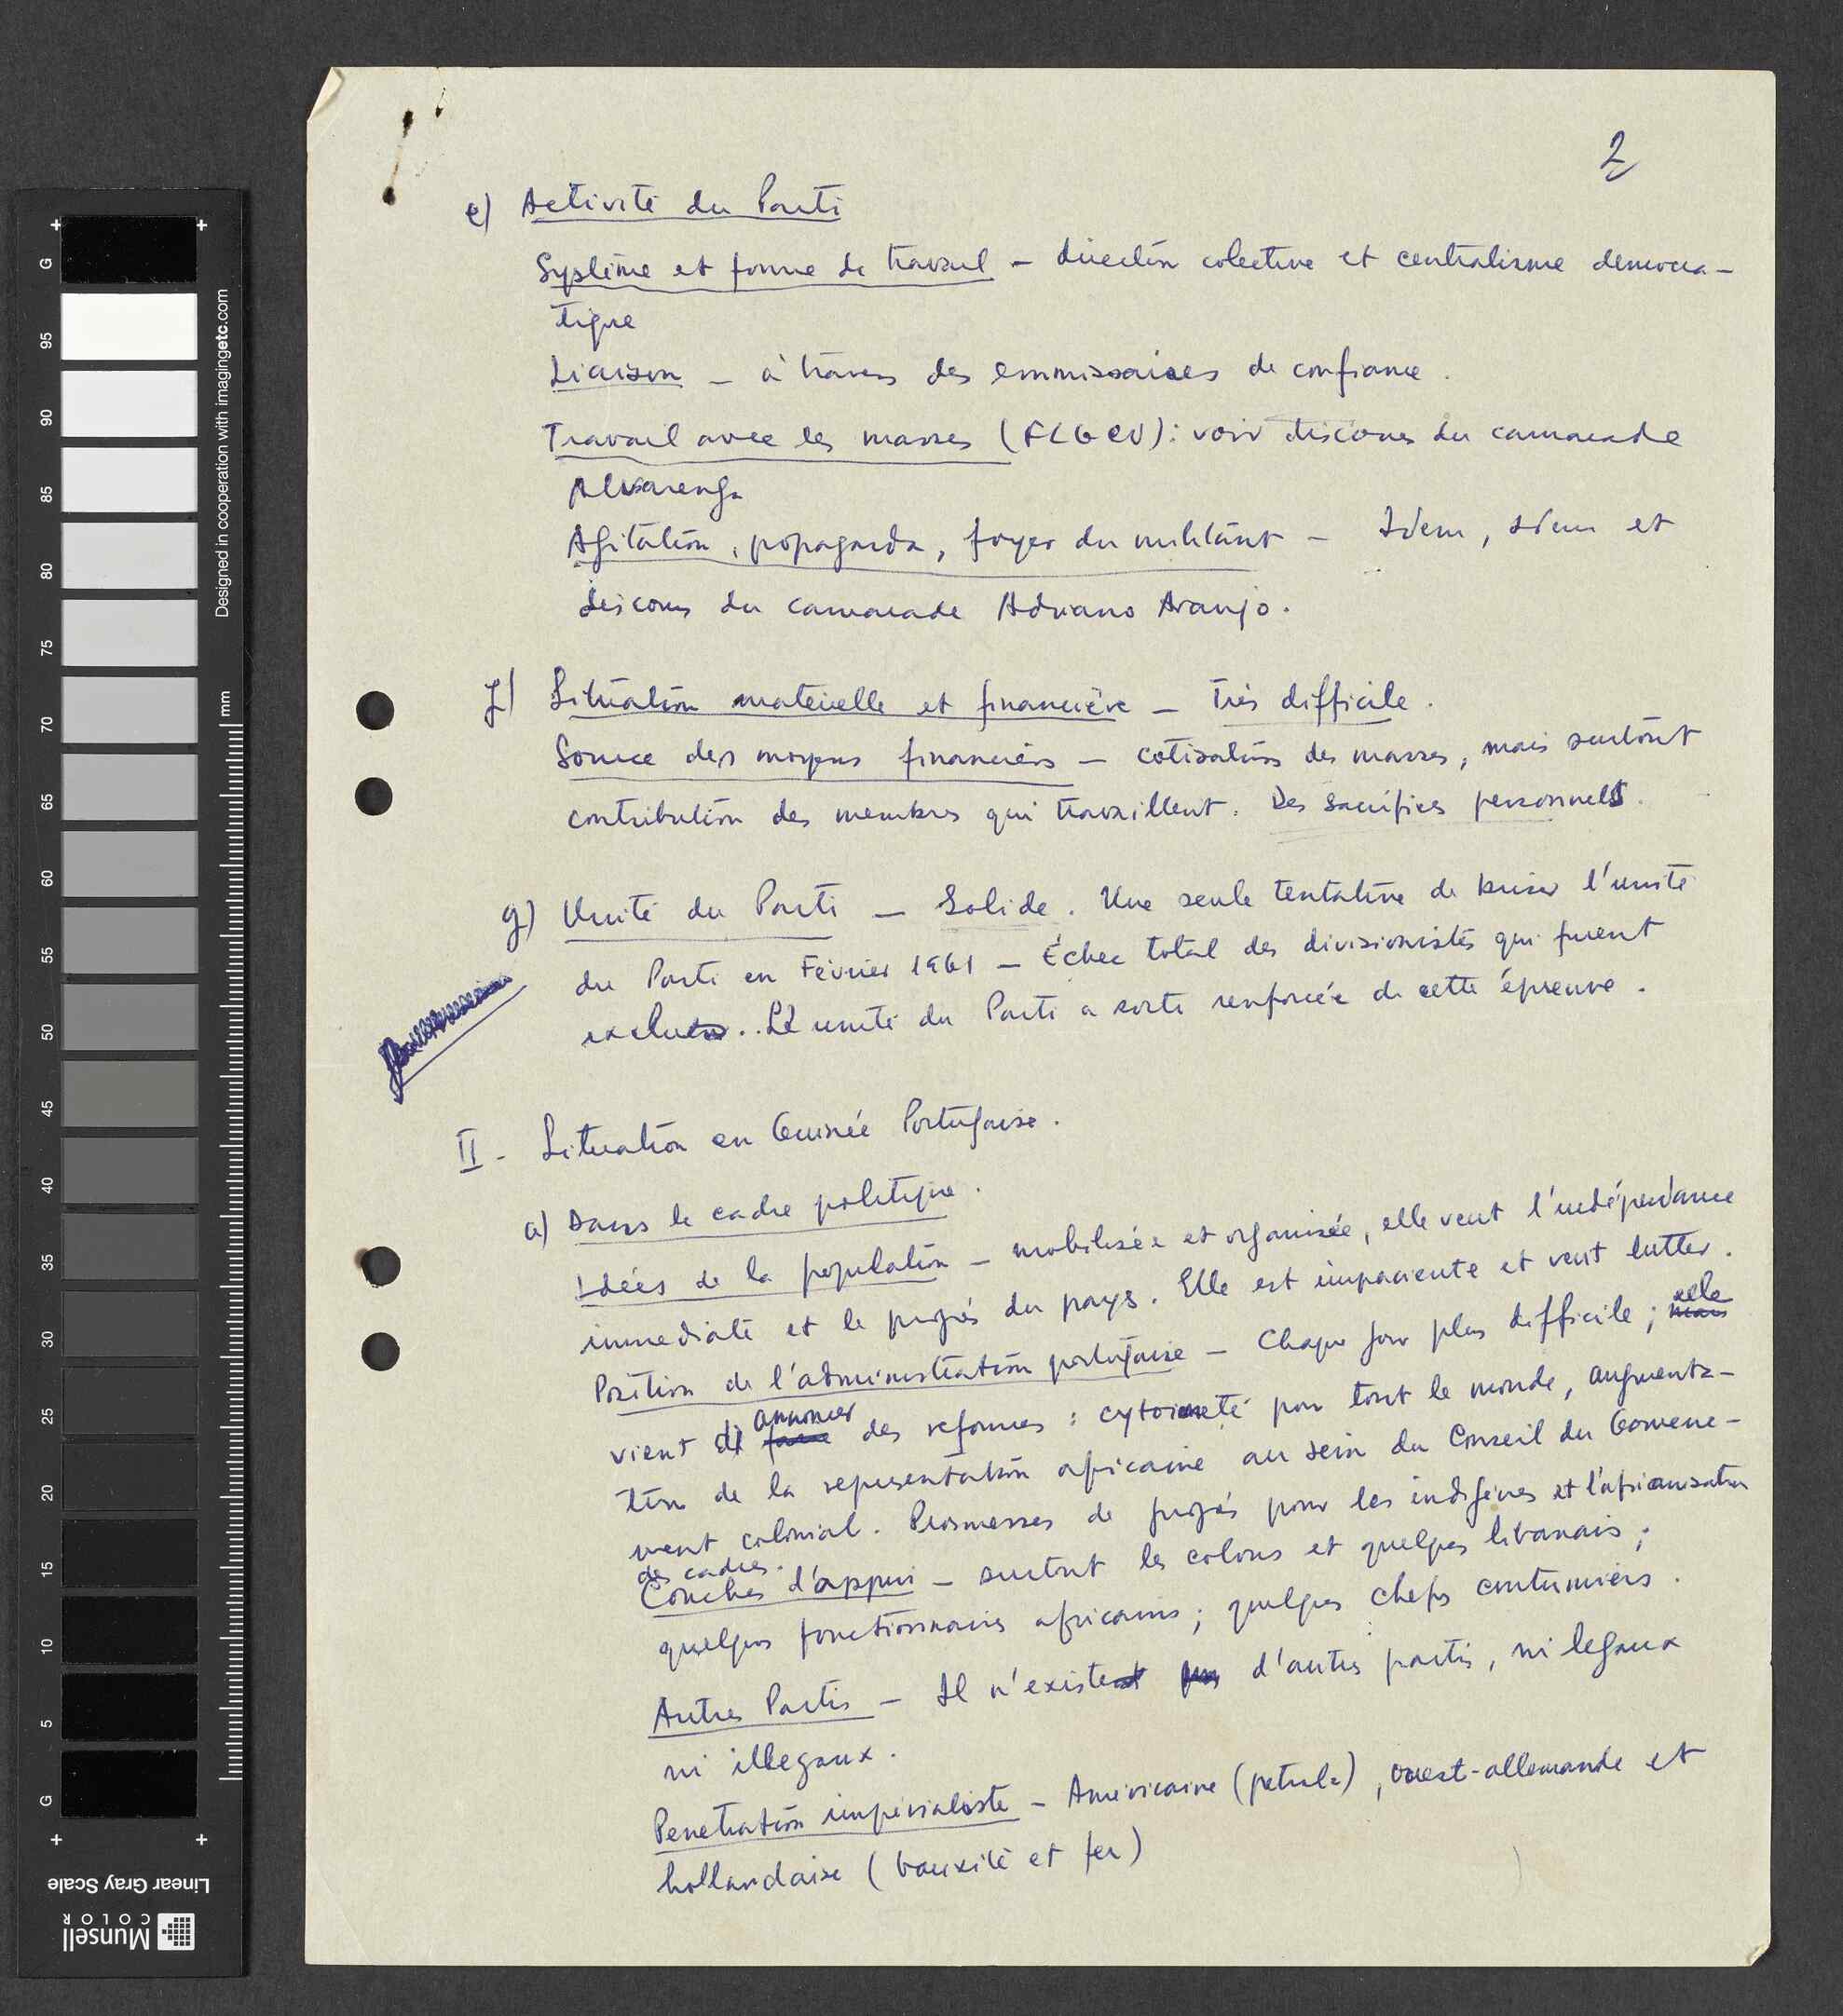 2
e) Activité du Parti
Système et forme de travail – direction colective et centralisme democra-
tique
Liaison – à travers des emmissaires de confiance.
Travail avec les masses (FLGCV): voir discours du camarade
Alvarenga
Agitation, propaganda, foyer du militant – Idem, idem et
discours du camarade Adriano Araujo.
f) Situation materielle et financière – très difficile.
Source des moyens financiers – cotisations des masses, mais surtout
contribution des membres qui travaillent. Des sacrifices personnels.
g) Unité du Parti – Solide. Une seule tentative de briser l'unité
du Parti en Février 1961 – Échec total des divisionistes qui furent
exclus. L'unité du Parti a sorti renforcée de cette épreuve.
II - Situation en Guinée Portugaise.
a) Dans le cadre politique.
Idées de la population – mobilisée et organisée, elle veut l'indépendance
immediate et le progrés du pays. Elle est impaciente et veut lutter.
Position de l'administration portugaise – Chaque jour plus difficile; mais elle
vient d' faire annoncer des reformes: cytoienneté pour tout le monde, augmenta-
tion de la representation africaine au sein du Conseil du Gouverne-
ment colonial. Promesses de progrés pour les indigènes et l'africanisation
des cadres.
Couches d'appui – surtout les colons et quelques libanais;
quelques fonctionnaires africains; quelques chefs coutumiers.
Autres Partis – Il n'existe pas d'autres partis, ni legaux
ni illegaux.
Penetration imperialiste – Américaine (petrole), ouest-allemande et
hollandaise (bauxite et fer)
Designed in cooperation with imagingetc.com
mm
G
95
90
85
80
75
70
65
60
55
50
45
40
35
30
25
20
15
10
5
G
Linear Gray Scale
Munsell
COLOR